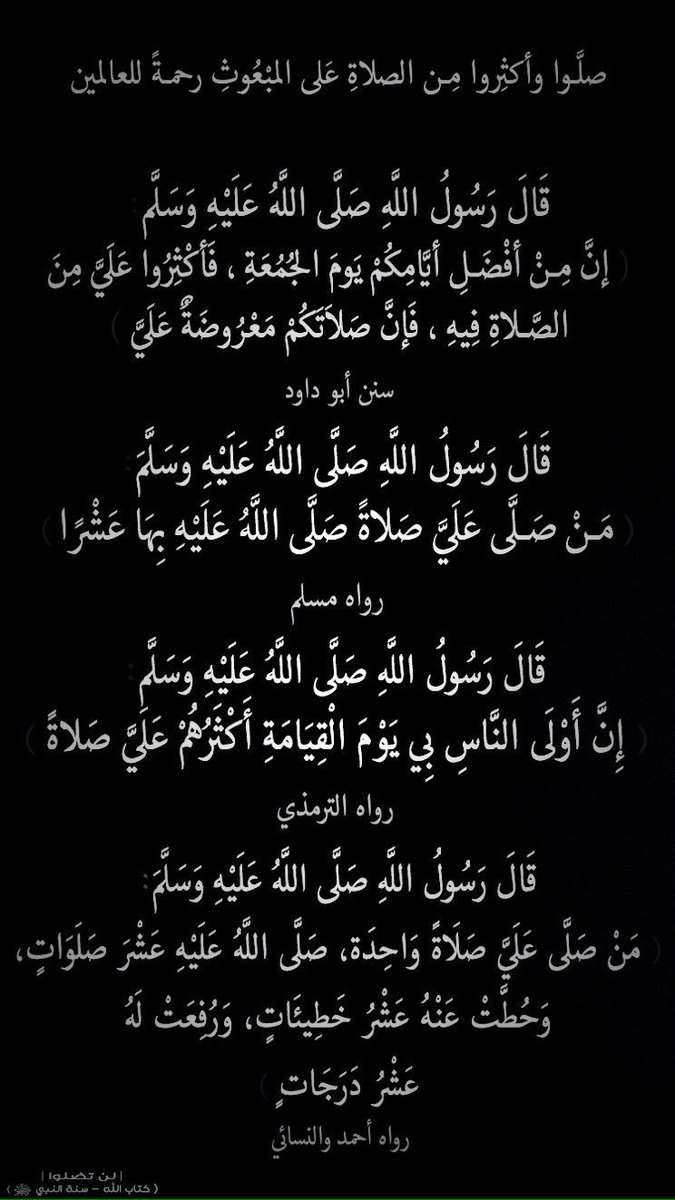 صلَّوا وأكثِروا مِن الصلاةِ عَلى المبْعُوثِ رحمةً للعالمين
قَالَ رَسُولُ اللَّهِ صَلَّى اللَّهُ عَلَيْهِ وَسَلَّم:
( إنَّ مِنْ أفْضَلِ أيَّامِكُمْ يَومَ الجُمُعَةِ ، فَأكْثِرُوا عَلَيَّ مِنَ
الصَّلاةِ فِيهِ ، فَإنَّ صَلاَتَكُمْ مَعْرُوضَةٌ عَلَيَّ )
سنن أبو داود
قَالَ رَسُولُ اللَّهِ صَلَّى اللَّهُ عَلَيْهِ وَسَلَّمَ:
( مَنْ صَلَّى عَلَيَّ صَلاةً صَلَّى اللَّهُ عَلَيْهِ بِهَا عَشْرًا )
رواه مسلم
قَالَ رَسُولُ اللَّهِ صَلَّى اللَّهُ عَلَيْهِ وَسَلَّم:
( إِنَّ أَوْلَى النَّاسِ بِي يَوْمَ الْقِيَامَةِ أَكْثَرُهُمْ عَلَيَّ صَلاةً )
رواه الترمذي
قَالَ رَسُولُ اللَّهِ صَلَّى اللَّهُ عَلَيْهِ وَسَلَّمَ:
( مَنْ صَلَّى عَلَيَّ صَلَاةً وَاحِدَة، صَلَّى اللَّهُ عَلَيْهِ عَشْرَ صَلَوَاتٍ،
وَحُطَّتْ عَنْهُ عَشْرُ خَطِيئَاتٍ، وَرُفِعَتْ لَهُ
عَشْرُ دَرَجَاتٍ )
رواه أحمد والنسائي
| لن تضلوا |
( كتاب الله - سنة النبي ﷺ )